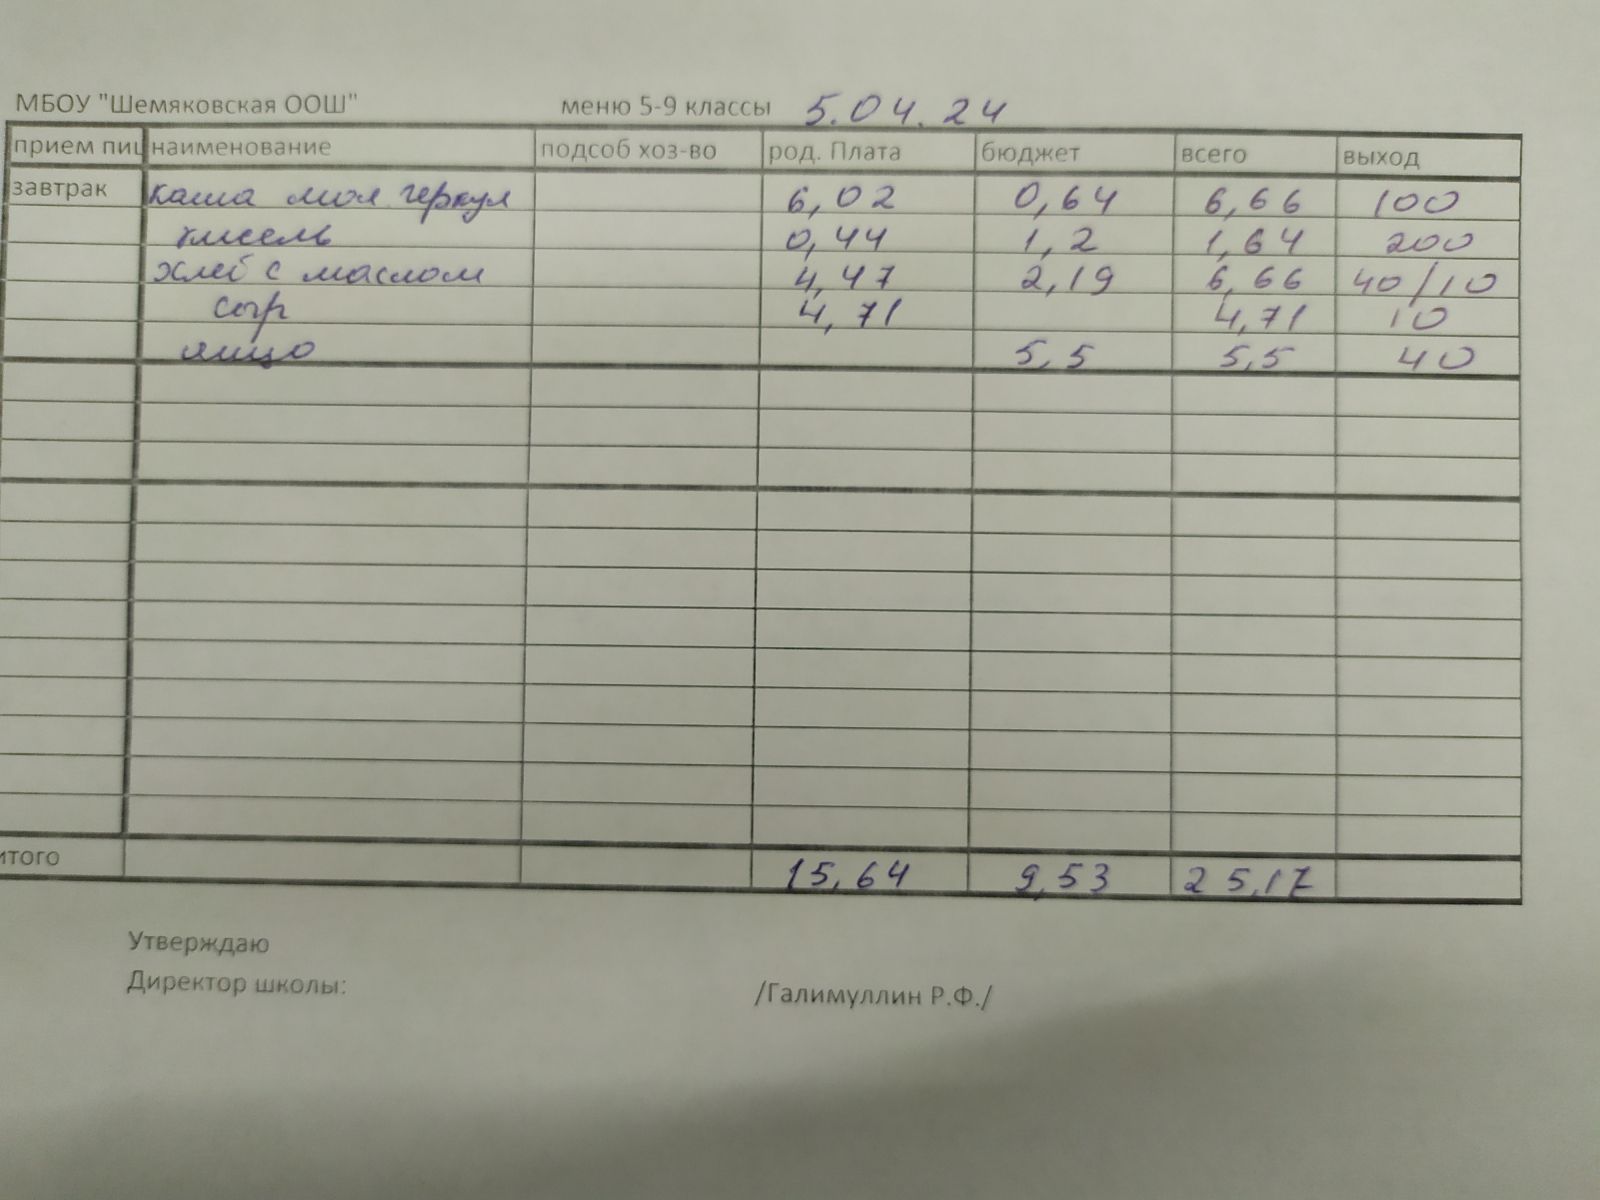 МБОУ "Шемяковская ООШ" меню 5-9 классы 5.04.24
прием пищ наименование подсоб хоз-во род. Плата бюджет всего выход
завтрак каша мол геркул 6,02 0,64 6,66 100
кисель 0,44 1,2 1,64 200
хлеб с маслом 4,47 2,19 6,66 40/10
сыр 4,71 4,71 10
яйцо 5,5 5,5 40
итого 15,64 9,53 25,17
Утверждаю
Директор школы: /Галимуллин Р.Ф./